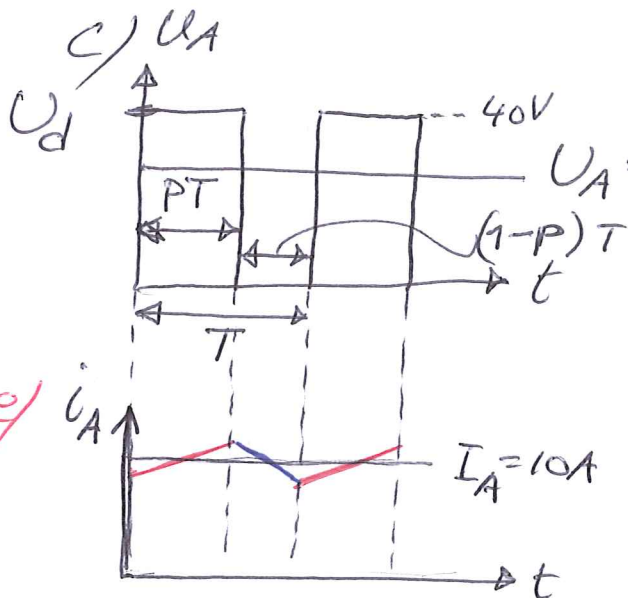 c) u_A
U_d
40V
U_A
pT
(1-p) T
t
T
i_A
I_A = 10A
t